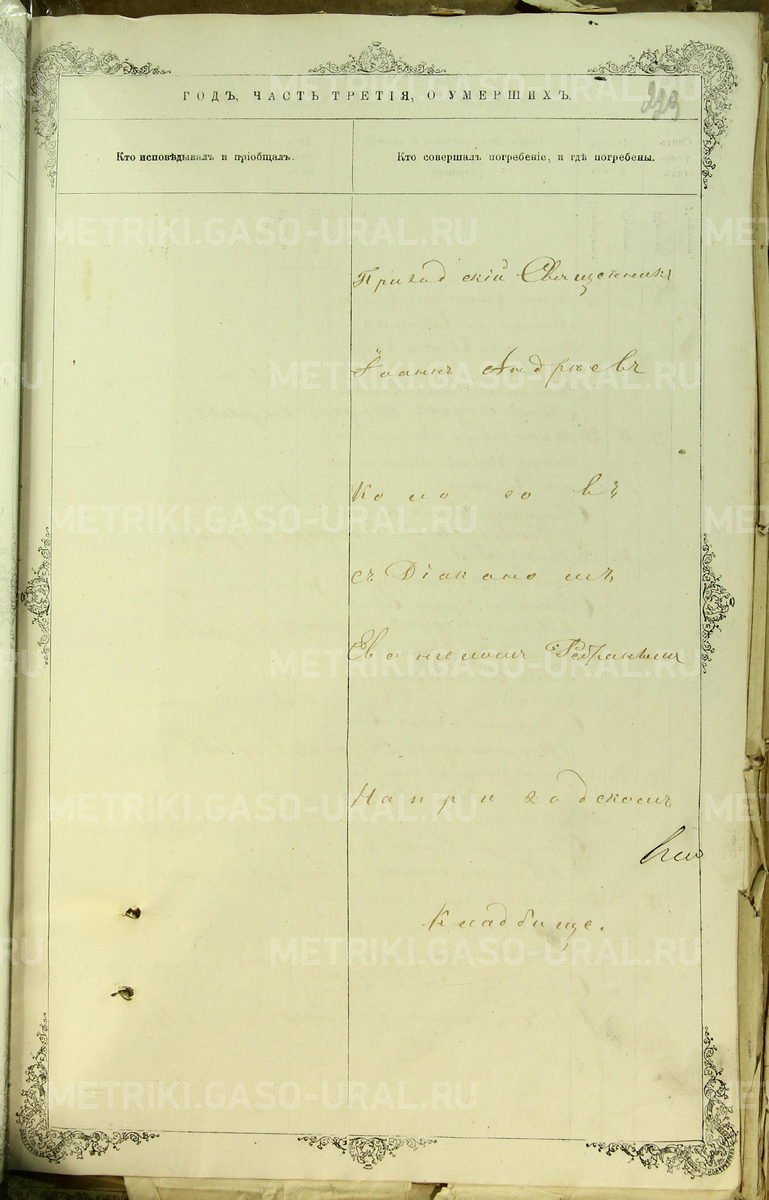 ГОДЪ, ЧАСТЬ ТРЕТІЯ, О УМЕРШИХЪ.
Кто исповѣдывалъ и пріобщалъ.
Кто совершалъ погребеніе, и гдѣ погребены.
Приходскій Священникъ
Іоаннъ Андреевъ
съ Діакономъ
На приходскомъ
Кладбище.
METRIKI.GASO-URAL.RU